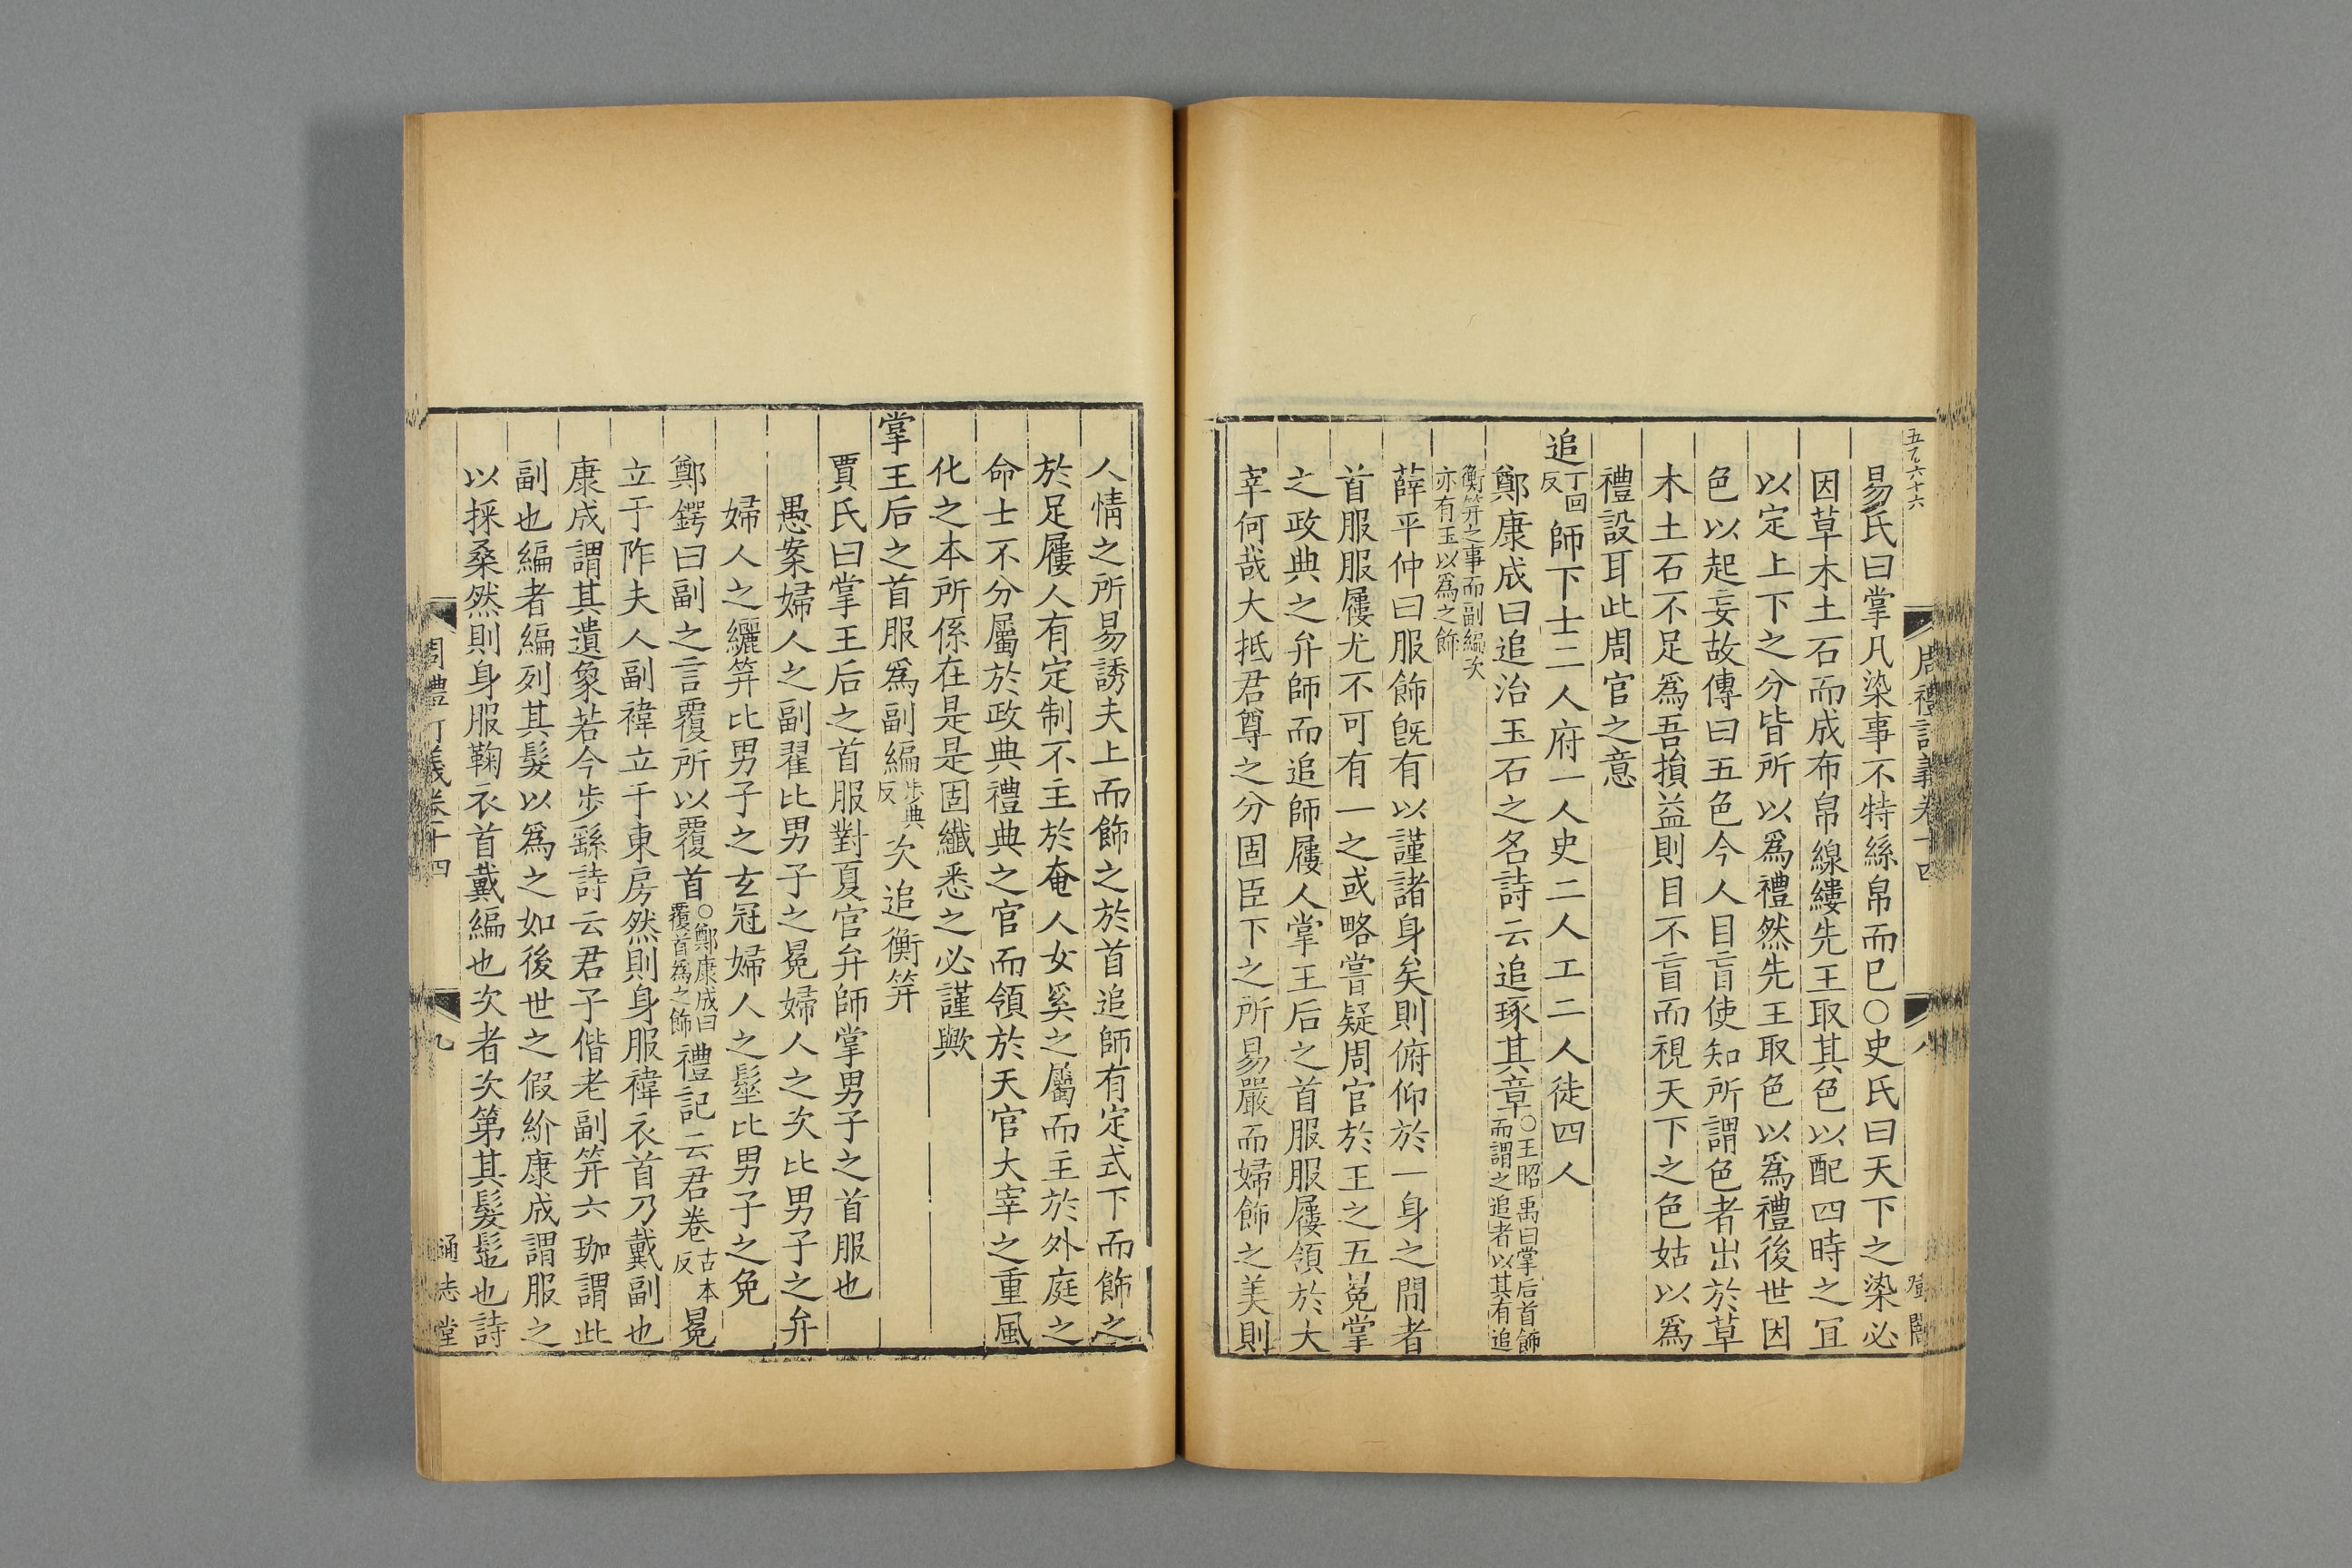 五百六十六
周禮訂義卷十四
八
易氏曰掌凡染事不特絲帛而已○史氏曰天下之染必
因草木土石而成布帛線縷先王取其色以配四時之冝
以定上下之分皆所以爲禮然先王取色以爲禮後世因
色以起妄故傳曰五色今人目盲使知所謂色者出於草
木土石不足爲吾損益則目不盲而視天下之色姑以爲
禮設耳此周官之意
追丁回反師下士二人府一人史二人工二人徒四人
鄭康成曰追治玉石之名詩云追琢其章○王昭禹曰掌后首飾而謂之追者以其有追
衡笄之事而副編次亦有玉以爲之飾
薛平仲曰服飾旣有以謹諸身矣則俯仰於一身之間者
首服服屨尤不可有一之或略嘗疑周官於王之五冕掌
之政典之弁師而追師屨人掌王后之首服服屨領於大
宰何哉大抵君尊之分固臣下之所易嚴而婦飾之美則
人情之所易誘夫上而飾之於首追師有定式下而飾之
於足屨人有定制不主於奄人女奚之屬而主於外庭之
命士不分屬於政典禮典之官而領於天官大宰之重風
化之本所係在是是固纖悉之必謹歟
掌王后之首服爲副編步典反次追衡笄
賈氏曰掌王后之首服對夏官弁師掌男子之首服也
愚案婦人之副翟比男子之冕婦人之次比男子之弁
婦人之纚笄比男子之玄冠婦人之髽比男子之免
鄭鍔曰副之言覆所以覆首○鄭康成曰覆首爲之飾禮記云君卷古本反冕
立于阼夫人副褘立于東房然則身服褘衣首乃戴副也
康成謂其遺象若今步繇詩云君子偕老副笄六珈謂此
副也編者編列其髮以爲之如後世之假紒康成謂服之
以採桑然則身服鞠衣首戴編也次者次第其髮髢也詩
周禮訂義卷十四
九
通志堂